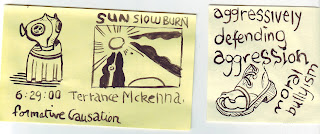 SUN SLOW BURN
6:29:00 Terrance Mckenna.
formative Causation
aggressively
defending
aggression
moral
bullyism